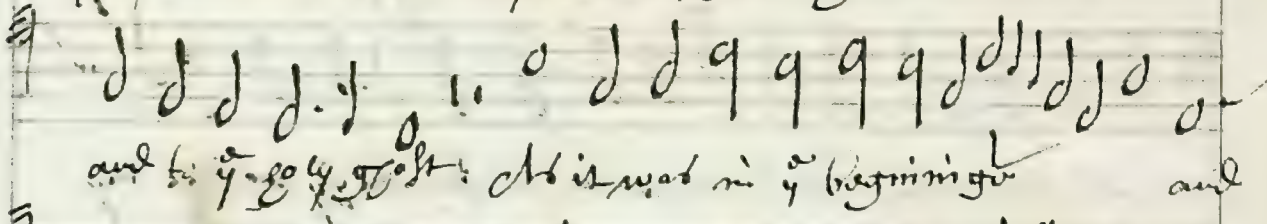 and to yᵉ holy ghost: As it was in yᵉ beginninge and